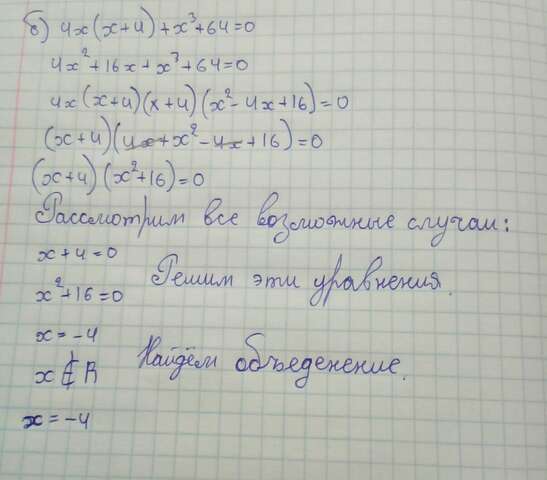 б) 4x(x+4)+x³+64=0
4x²+16x+x³+64=0
4x(x+4)(x+4)(x²-4x+16)=0
(x+4)(4x+x²-4x+16)=0
(x+4)(x²+16)=0
Рассмотрим все возможные случаи:
x+4=0
x²+16=0 Решим эти уравнения.
x=-4
x∉R Найдём объеденение.
x=-4